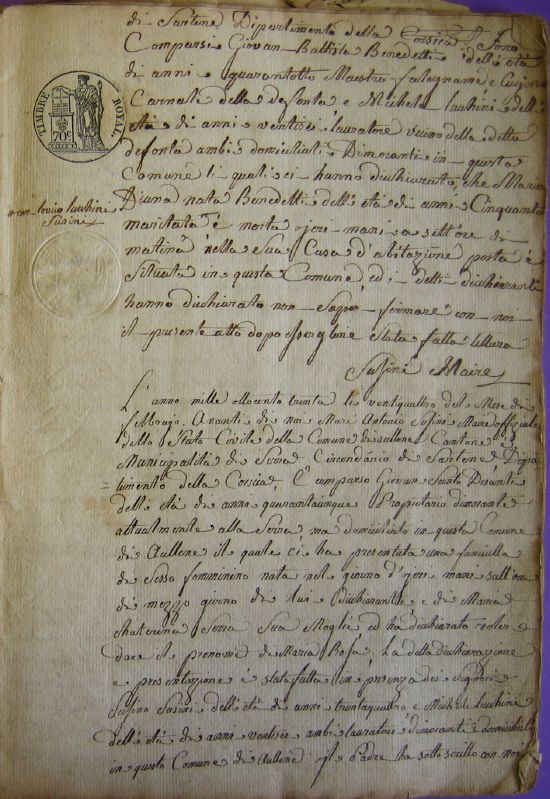 TIMBRE ROYAL
70c
di Sartene Dipartimento della Corsica Sono
Comparsi Giovan Battista Benedetti dell'età
di anni quarantotto Maestro falegname e Cugino
Carnale della defonta e Michele Luchini dell'
età di anni ventisei lavoratore vicino della detta
defonta ambi domiciliati Dimoranti in questa
Comune li quali ci hanno dichiarato, che Maria
Diana nata Benedetti dell'età di anni Cinquanta
maritata è morta jeri mani a sett'ore di
matina nella sua Casa d'abitazione posta e
Situata in questa Comune ed i detti dichiaranti
hanno dichiarato non saper firmare con noi
il presente atto dopo essergliene stata fatta lettura
Susini Maire
con Luchini
Susini
L'anno mille ottocento trenta li ventiquattro del Mese di
febrajo. Avanti di noi Marc Antonio Susini Maire officiale
dello Stato Civile della Comune di aullene Cantone e
Municipalità di Serra Circondario di Sartene Dipar
timento della Corsica, È comparso Giovan Santo Desanti
dell'età di anni quarantacinque Proprietario dimorante
attualmente alla Serra ma domiciliato in questa Comune
di Aullene il quale ci ha presentata una fanciulla
di Sesso femminino nata nel giorno d'jeri mani sull'ora
di mezzo giorno di lui dichiarante e di Maria
Chaterina Serra Sua Moglie ed ha dichiarato voler
dare il pronome di Maria Rosa. La detta dichiarazione
e presentazione è stata fatta in presenza dei Signori
Susini dell'età di anni trentaquattro e Michele Luchini
dell'età di anni ventisei ambi lavoratori dimoranti e domiciliati
in questa Comune di Aullene il Padre ha sottoscritto con noi